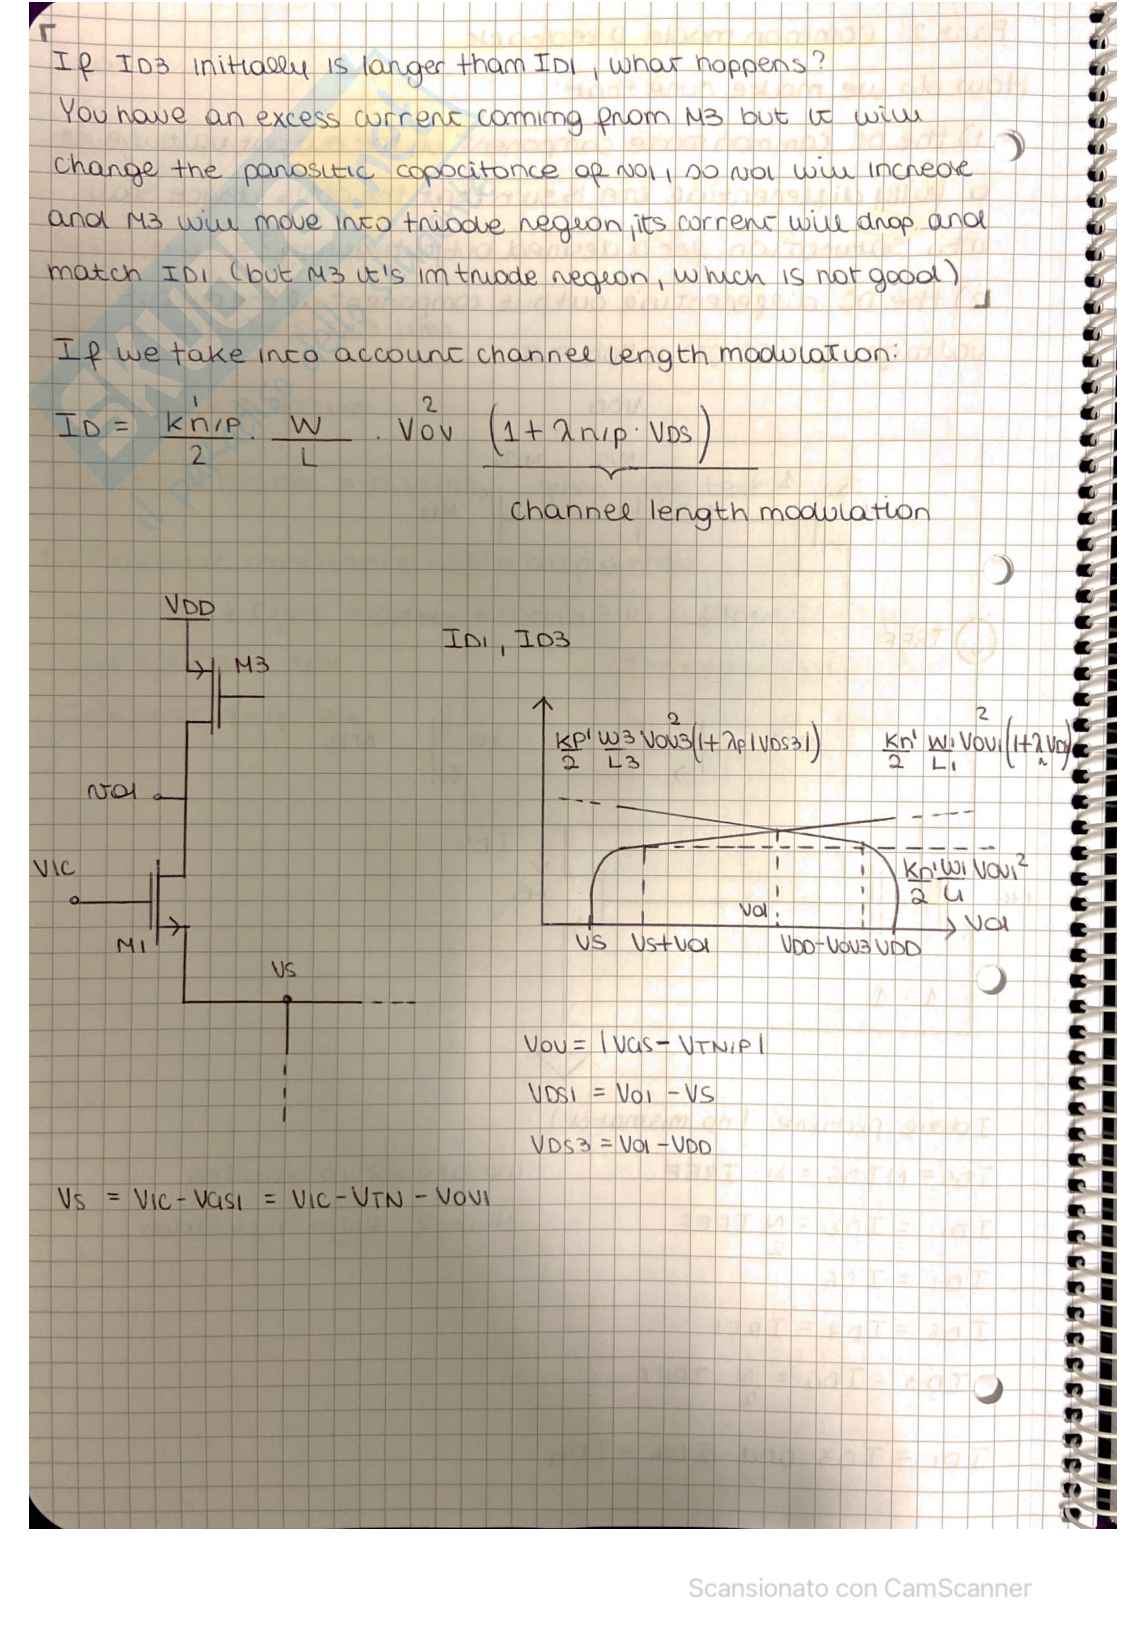 If ID3 initially is larger than ID1, what happens?
You have an excess current coming from M3 but it will
change the parasitic capacitance of vo1, so vo1 will increase
and M3 will move into triode region, its current will drop and
match ID1 (but M3 it's in triode region, which is not good)
If we take into account channel length modulation:
ID = k'n/p / 2 · W / L · VOV² (1 + λn/p · VDS)
channel length modulation
VDD
M3
ID1, ID3
kp'/2 W3/L3 VOV3² (1+λp|VDS3|)
kn'/2 W1/L1 VOV1² (1+λn VD
vo1
VIC
M1
kn'/2 W1/L1 VOV1²
Vo1
Vo1
VS VS+Vo1 VDD-VOV3 VDD
VS
VOV = |VGS - VTN/P|
VDS1 = Vo1 - VS
VDS3 = Vo1 - VDD
VS = VIC - VGS1 = VIC - VTN - VOV1
Scansionato con CamScanner